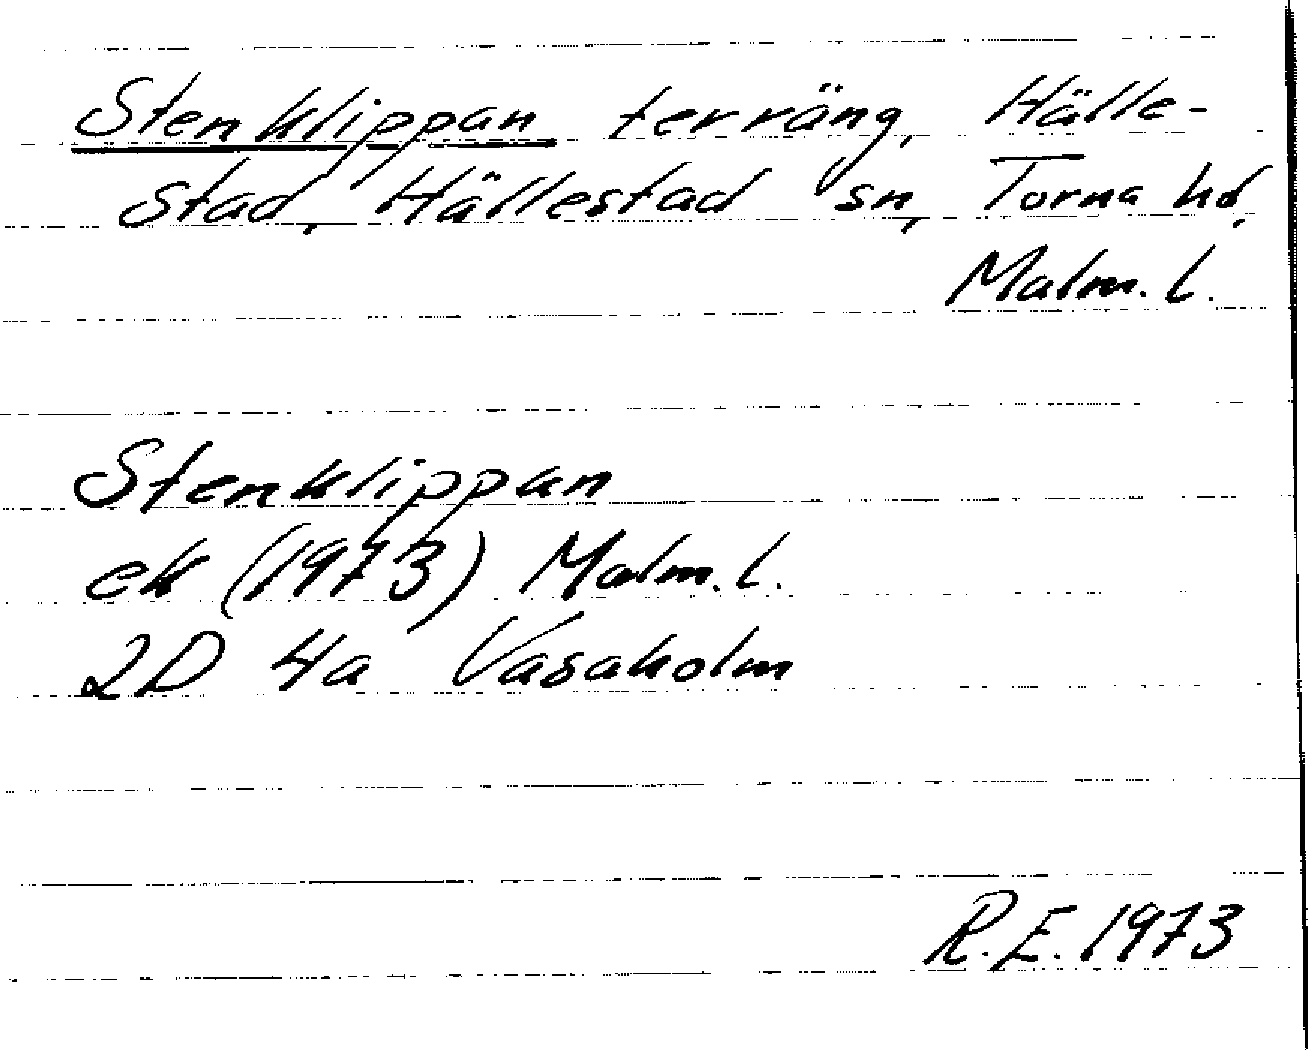 Stenklippan terräng, Hälle-
stad, Hällestad sn, Torna hd,
Malm. l.
Stenklippan
ek (1973) Malm. l.
2D 4a Vasaholm
R.E. 1973